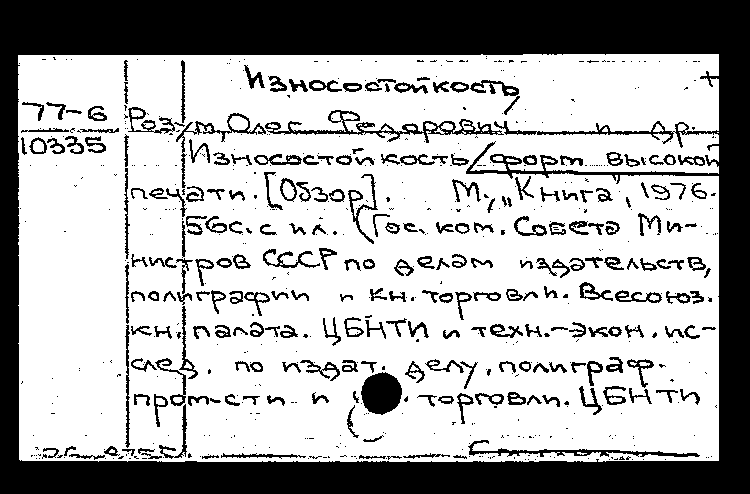 Износостойкость
77-6
10335
Розум, Олес Федорович и др.
Износостойкость форм высокой
печати. [Обзор]. М., „Книга", 1976.
56с. с ил. (Гос. ком. Совета Ми-
нистров СССР по делам издательств,
полиграфии и кн. торговли. Всесоюз.
кн. палата. ЦБНТИ и техн.-экон. ис-
след. по издат. делу, полиграф.
пром-сти и торговли. ЦБНТИ